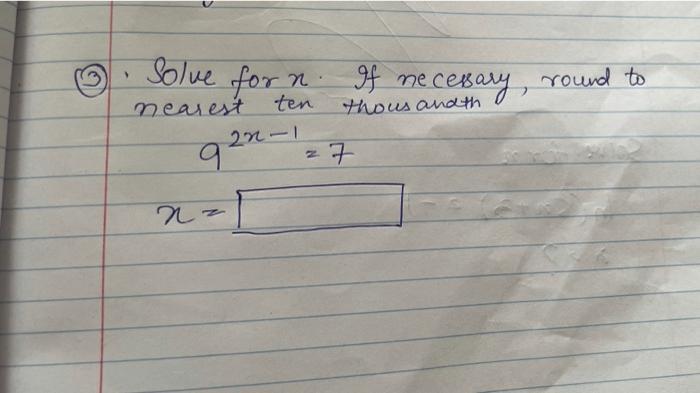 ③. Solve for x. If necessary, round to
nearest ten thousandth
9^{2x-1} = 7
x =